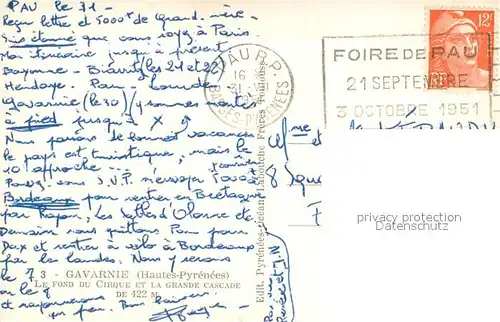 PAU le 31 -
Reçu lettre et 5000f de Grand-mère -
Suis étonné que vous soyez à Paris.
Mon itinéraire jusqu'à présent
Bayonne - Biarritz (les 21 et 22)
Hendaye - Pau - Lourdes
Gavarnie (le 30) y sommes montés
à pied jusqu'à X
Nous passons de bonnes vacances
le pays est touristique, mais le
10 approche...
S.V.P. m'envoyer
Bordeaux pour rentrer en Bretagne
par Royan, les Sables d'Olonne etc
Demain nous quittons Pau pour
Dax et rentrer à vélo à Bordeaux
par les Landes. Nous y serons
le 7
3 - GAVARNIE (Hautes-Pyrénées)
LE FOND DU CIRQUE ET LA GRANDE CASCADE
DE 422 M.
ou le 8
et
un peu. Bons baisers
Edit. Pyrénées-Océan, Labouche Frères, Toulouse
PAU R.P.
16
31
BASSES-PYRÉNÉES
FOIRE DE PAU
21 SEPTEMBRE
3 OCTOBRE 1951
12F
Mme et
8 Squ
F
privacy protection
Datenschutz